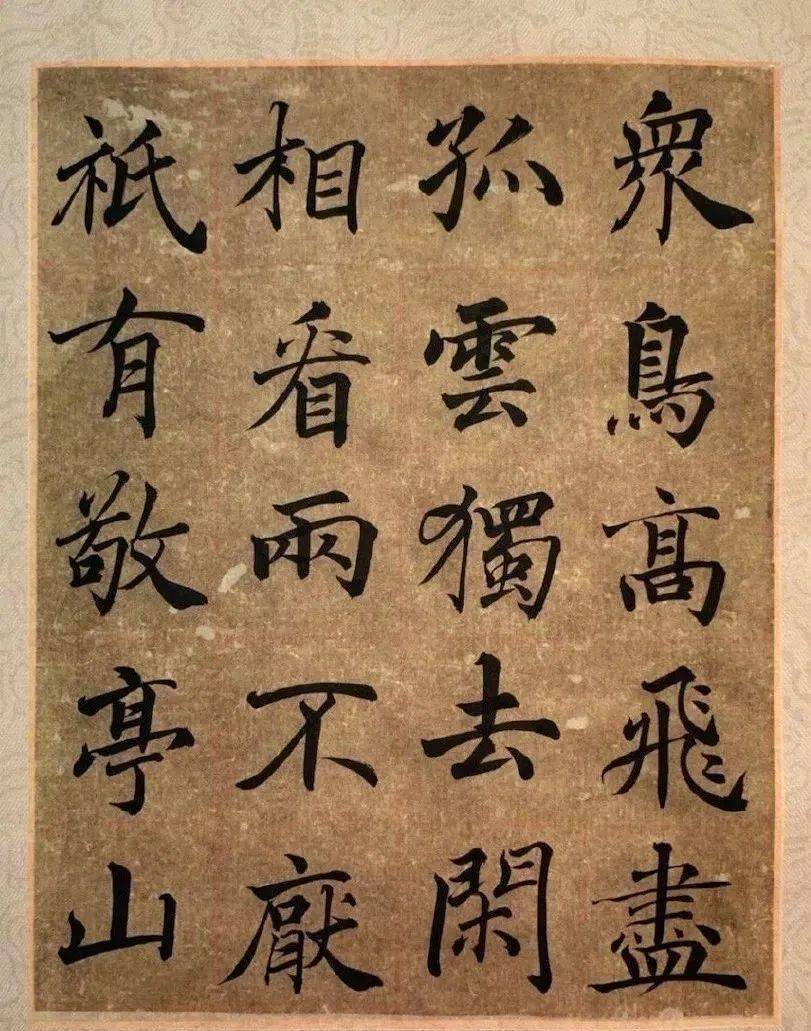 衆鳥高飛盡
孤雲獨去閑
相看兩不厭
祇有敬亭山